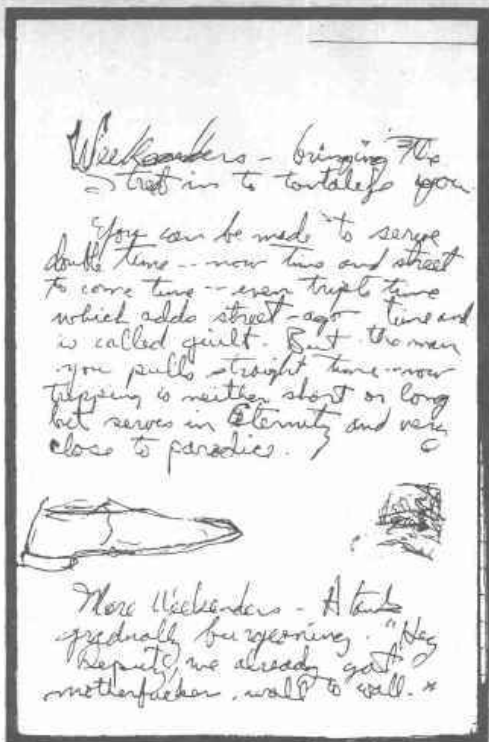 Weekenders - bringing the
Street in to tantalize you
You can be made to serve
double time -- now time and street
to come time -- even triple time
which adds street-ago time and
is called guilt. But the man
you pulls straight time--now
tripping is neither short or long
but serves in Eternity and very
close to paradice.
More Weekenders - A tank
gradually burgeoning. "Hey
Deputy, we already got
motherfucker, wall to wall."